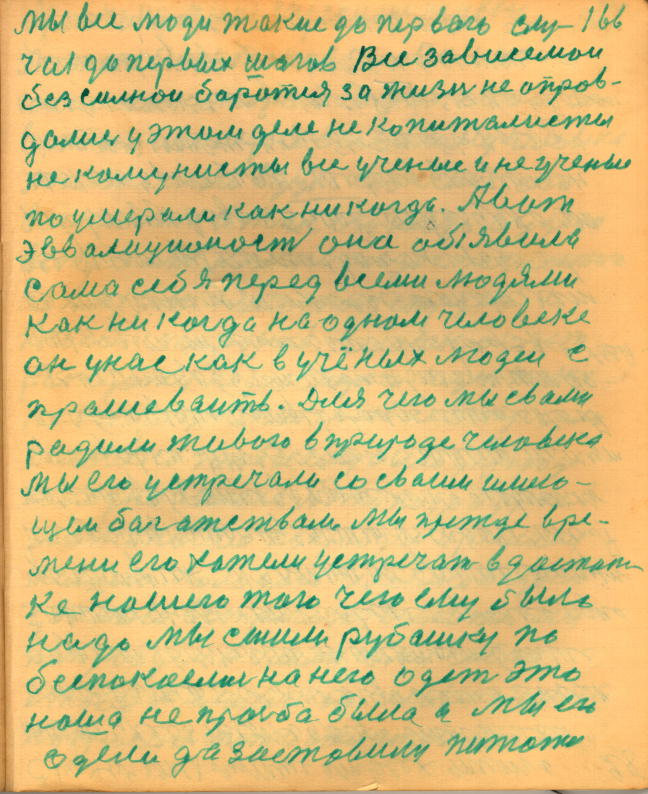 мы все люди такие до первого слу- 166
чая до первых шагов Все зависемои
без силнои баротся за жизн не опров-
дались у этом деле не копиталисты
не комунисты все ученые и не ученые
по умерали как никогда. А вот
эвволиционост она обявила
сама себя перед всеми людями
как никогда на одном человеке
он у нас как в учёных людеи с
прашеваить. Для чего мы свами
радили живого в природе человека
мы его устречали со своим имею-
щем багатствам мы прежде вре-
мени его хатели устречат в достат
ке нашего того чего ему было
надо мы сшили рубашку по
беспокоелис на него одет это
наша не прозба была а мы его
одели да заставили питатся